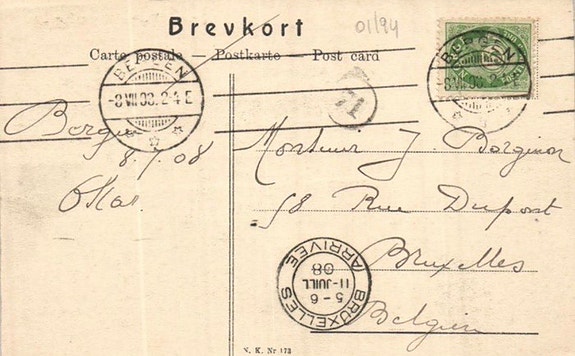 Brevkort
01/94
Carte postale — Postkarte — Post card
BERGEN
-8 VII 08. 2-4 E
BERGEN
71
Bergen
8.7.08
Monsieur J.
Rue Dupont
Bruxelles
Belgien
BRUXELLES
ARRIVEE
5-6
11-JUILL
08
N. K. Nr 173